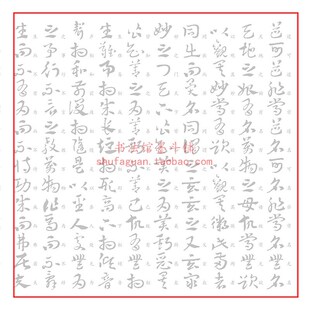 道可道非常道名可名非常名無名
天地之始有名萬物之母故常無欲
以觀其妙常有欲以觀其徼此兩者
同出而異名同謂之玄玄之又玄眾
妙之門天下皆知美之為美斯惡矣
皆知善之為善斯不善已故有無相
生難易相成長短相形高下相傾音
聲相和前後相隨是以聖人處無為
之事行不言之教萬物作焉而不辭
生而不有為而不恃功成而弗居夫
shufaguan.taobao.com